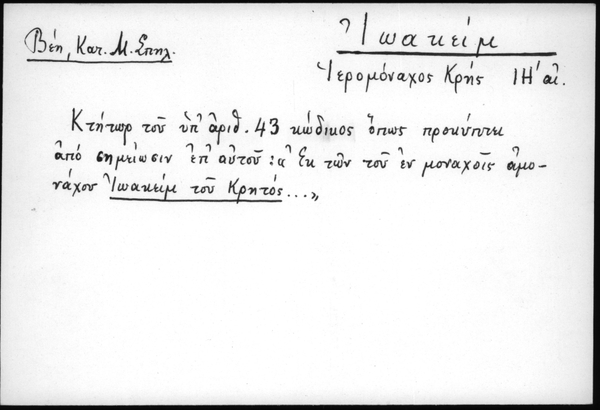 Βέη, Κατ. Μ. Σπηλ.
Ἰωακείμ
Ἱερομόναχος Κρής ΙΗ' αἰ.
Κτήτωρ τοῦ ὑπ' ἀριθ. 43 κώδικος ὅπως προκύπτει
ἀπό σημείωσιν ἐπ' αὐτοῦ: «Ἐκ τῶν τοῦ ἐν μοναχοῖς ἀμο-
νάχου Ἰωακείμ τοῦ Κρητός...»